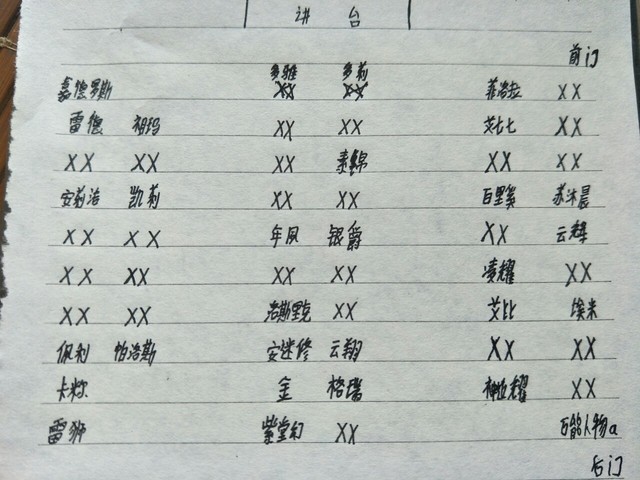 讲 台
前门
多雅 多莉
嘉德罗斯 XX XX 菲洛拉 XX
雷德 祖玛 XX XX 艾七七 XX
XX XX XX 素锦 XX XX
安莉洁 凯莉 XX XX 百里笑 苏沐晨
XX XX 年夙 银爵 XX 云翔
XX XX XX XX 凌耀 XX
XX XX 洛斯里克 XX 艾比 埃米
佩利 帕洛斯 安迷修 云翔 XX XX
卡米尔 金 格瑞 神近耀 XX
雷狮 紫堂幻 XX 万能人物a
后门